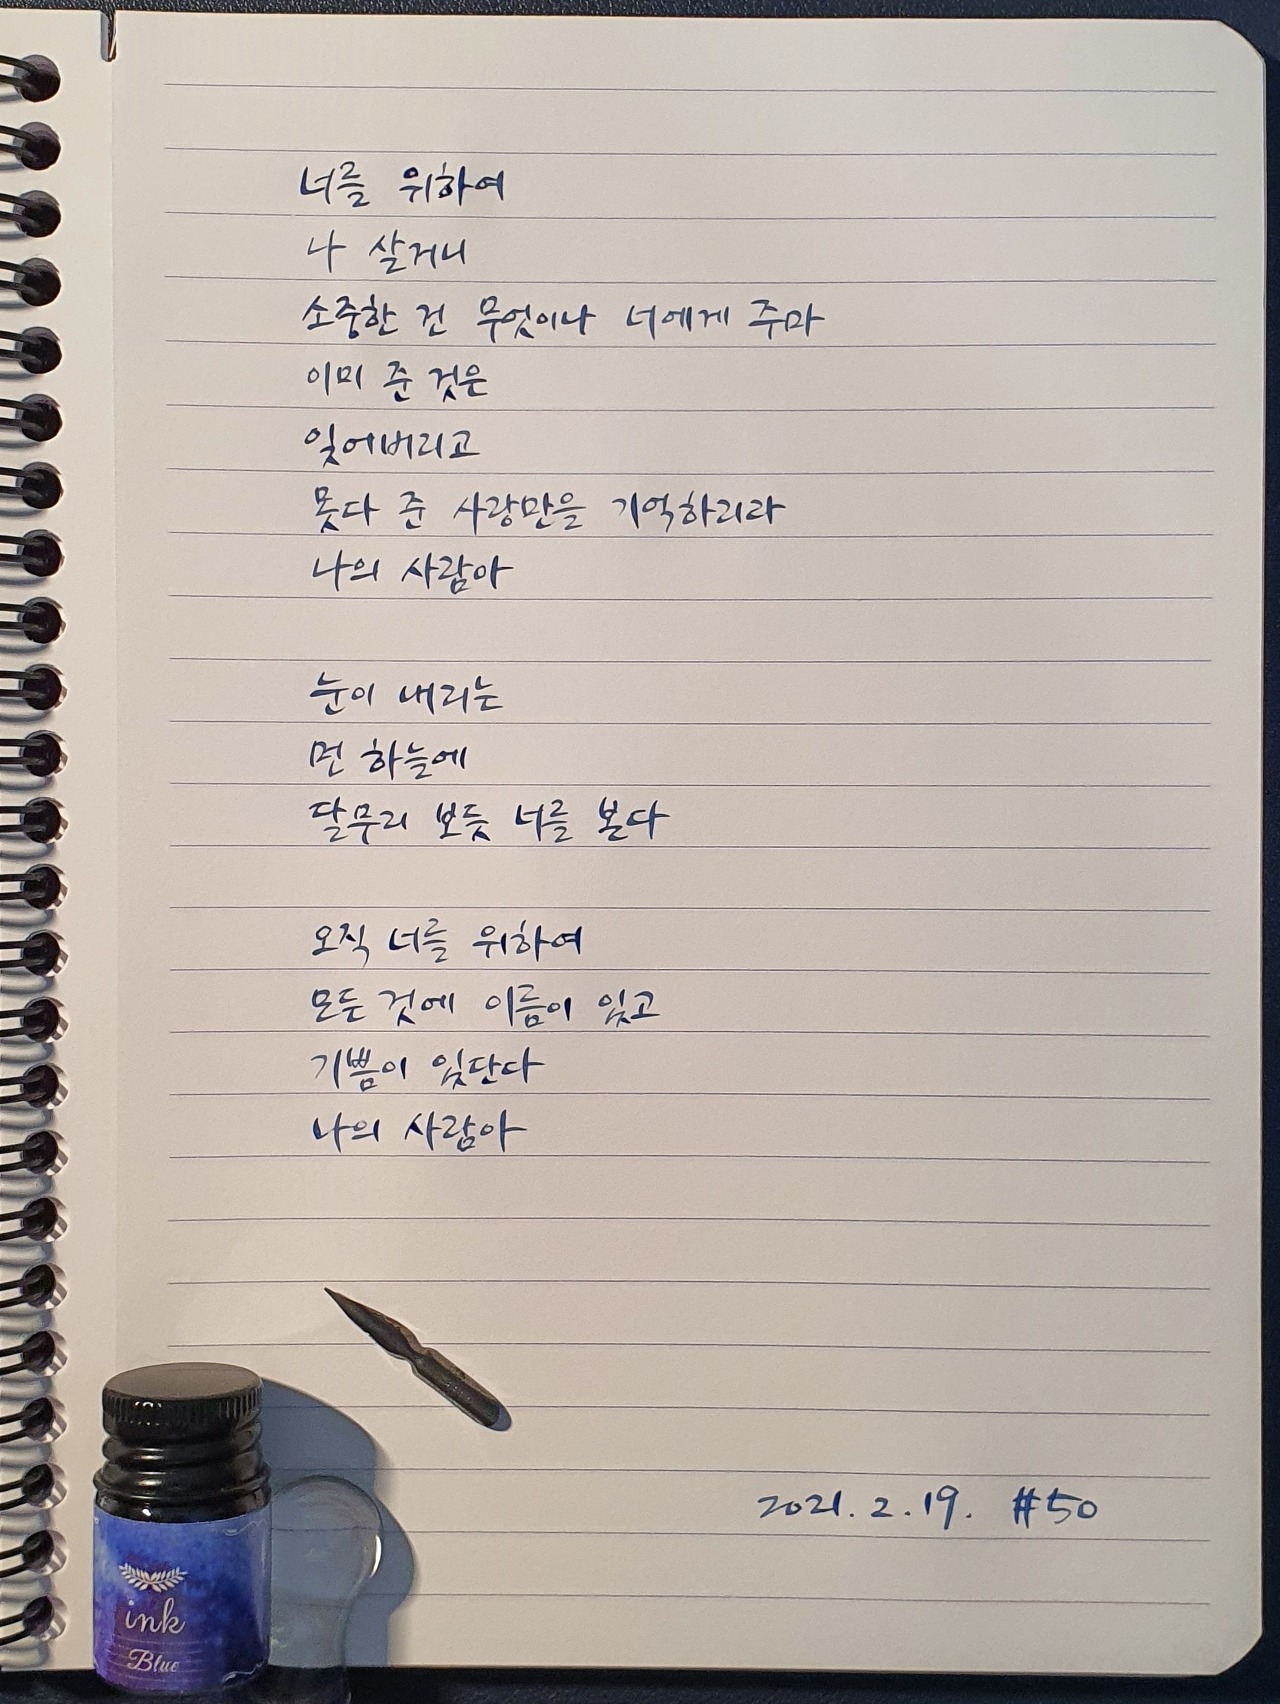 너를 위하여
나 살거니
소중한 건 무엇이나 너에게 주마
이미 준 것은
잊어버리고
못다 준 사랑만을 기억하리라
나의 사람아
눈이 내리는
먼 하늘에
달무리 보듯 너를 본다
오직 너를 위하여
모든 것에 이름이 있고
기쁨이 있단다
나의 사람아
2021. 2. 19. #50
ink
Blue